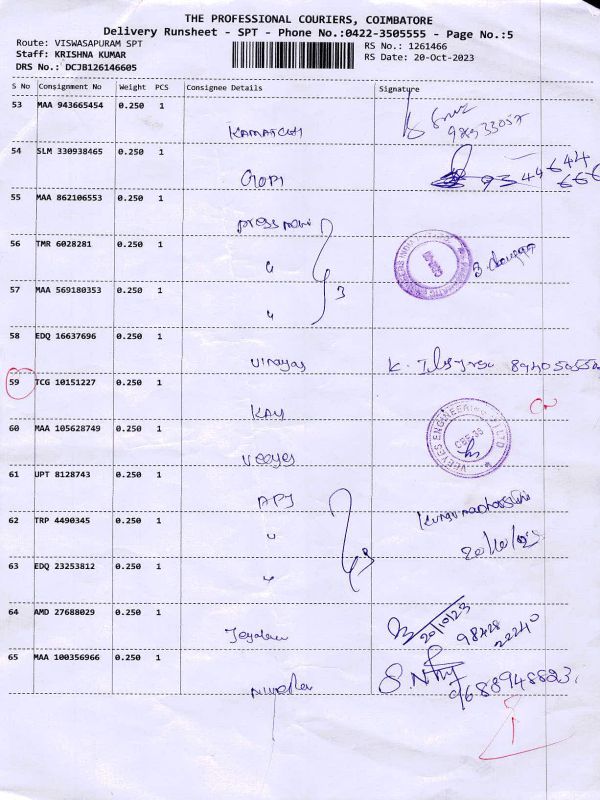 THE PROFESSIONAL COURIERS, COIMBATORE
Delivery Runsheet - SPT - Phone No.:0422-3505555 - Page No.:5
Route: VISWASAPURAM SPT
RS No.: 1261466
Staff: KRISHNA KUMAR
RS Date: 20-Oct-2023
DRS No.: DCJB126146605
S No Consignment No Weight PCS Consignee Details Signature
53 MAA 943665454 0.250 1
KAMATCHI
54 SLM 330938465 0.250 1
GOPI
55 MAA 862106553 0.250 1
56 TMR 6028281 0.250 1
57 MAA 569180353 0.250 1
3
58 EDQ 16637696 0.250 1
Vinayag
59 TCG 10151227 0.250 1
KAY
60 MAA 105628749 0.250 1
VEETES ENGINEERING
CBE-35
Veeyes
61 UPT 8128743 0.250 1
API
62 TRP 4490345 0.250 1
20/10/23
63 EDQ 23253812 0.250 1
3
64 AMD 27688029 0.250 1
20/10/23
98428
22240
65 MAA 100356966 0.250 1
9688948823